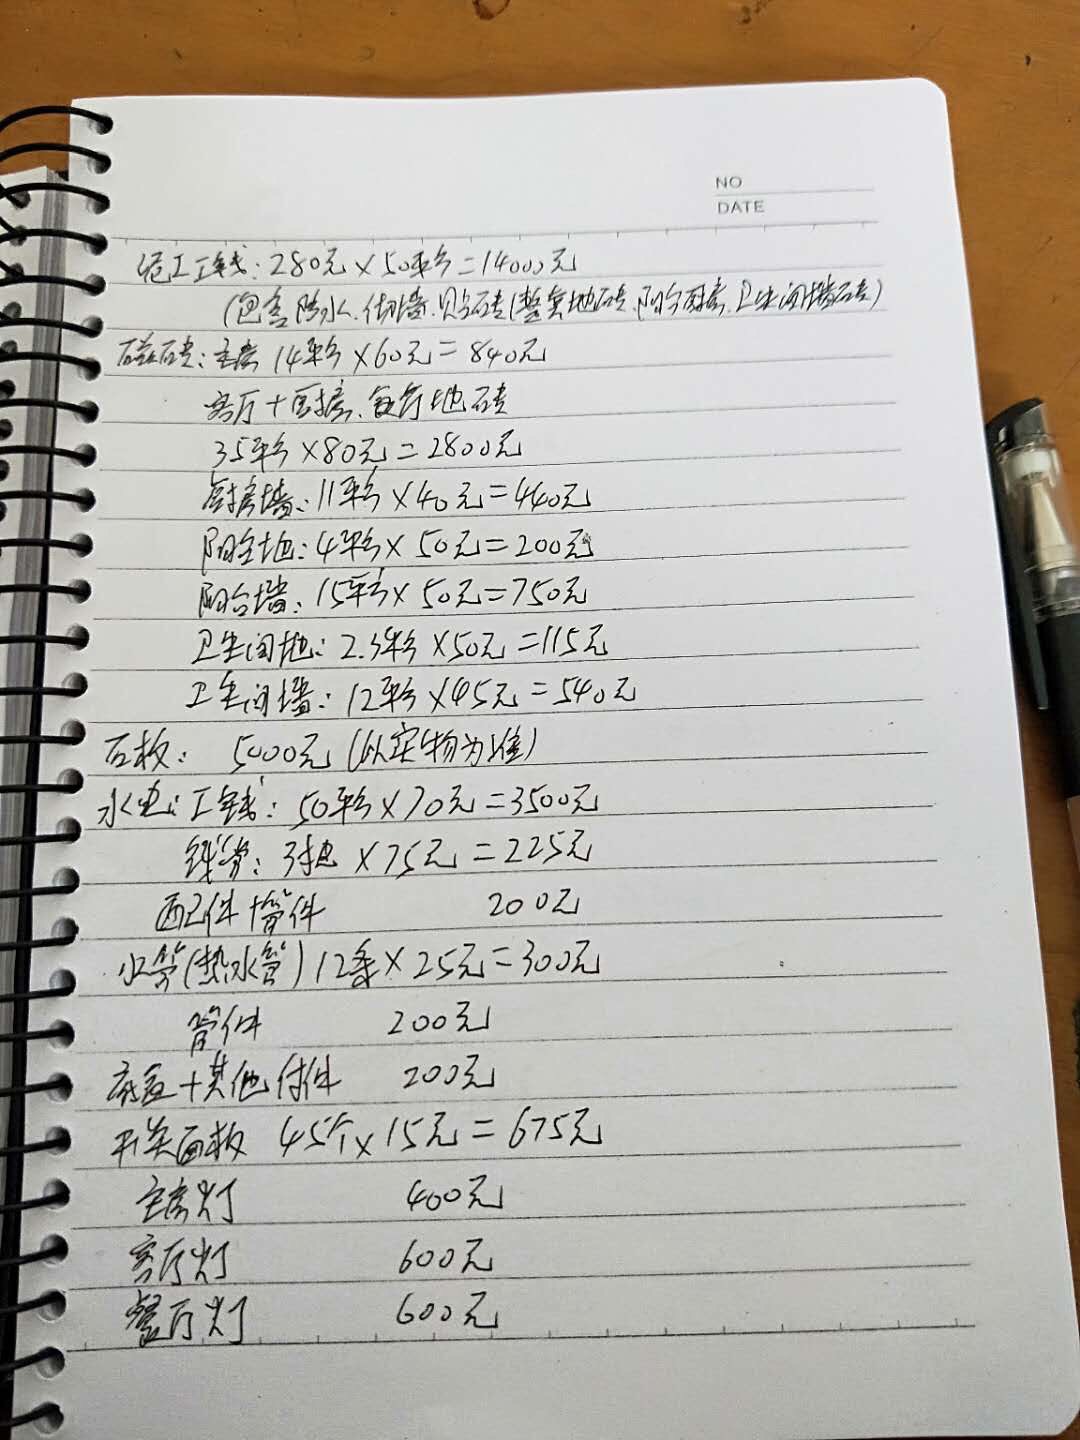 NO
DATE
泥工工钱：280元×50平方=14000元
(包含防水.做墙.贴砖(整套地砖.阳台厨房.卫生间墙砖)
磁砖：主房 14平方×60元=840元
客厅+厨房、食厅地砖
35平方×80元=2800元
厨房墙：11平方×40元=440元
阳台地：4平方×50元=200元
阳台墙：15平方×50元=750元
卫生间地：2.3平方×50元=115元
卫生间墙：12平方×45元=540元
石板： 5000元(以实物为准)
水电：工钱：50平方×70元=3500元
线管：3扎×75元=225元
配件 管件 200元
水管(热水管)12条×25元=300元
管件 200元
底盒+其他付件 200元
开关面板 45个×15元=675元
主房灯 400元
客厅灯 600元
餐厅灯 600元